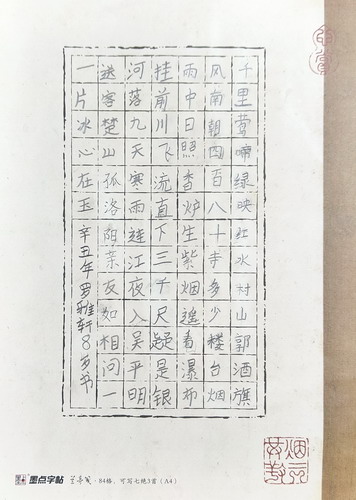 千里莺啼绿映红水村山郭酒旗
风南朝四百八十寺多少楼台烟
雨中日照香炉生紫烟遥看瀑布
挂前川飞流直下三千尺疑是银
河落九天寒雨连江夜入吴平明
送客楚山孤洛阳亲友如相问一
一片冰心在玉辛丑年罗雅轩8岁书
墨点字帖 兰亭笺·84格，可写七绝3首（A4）